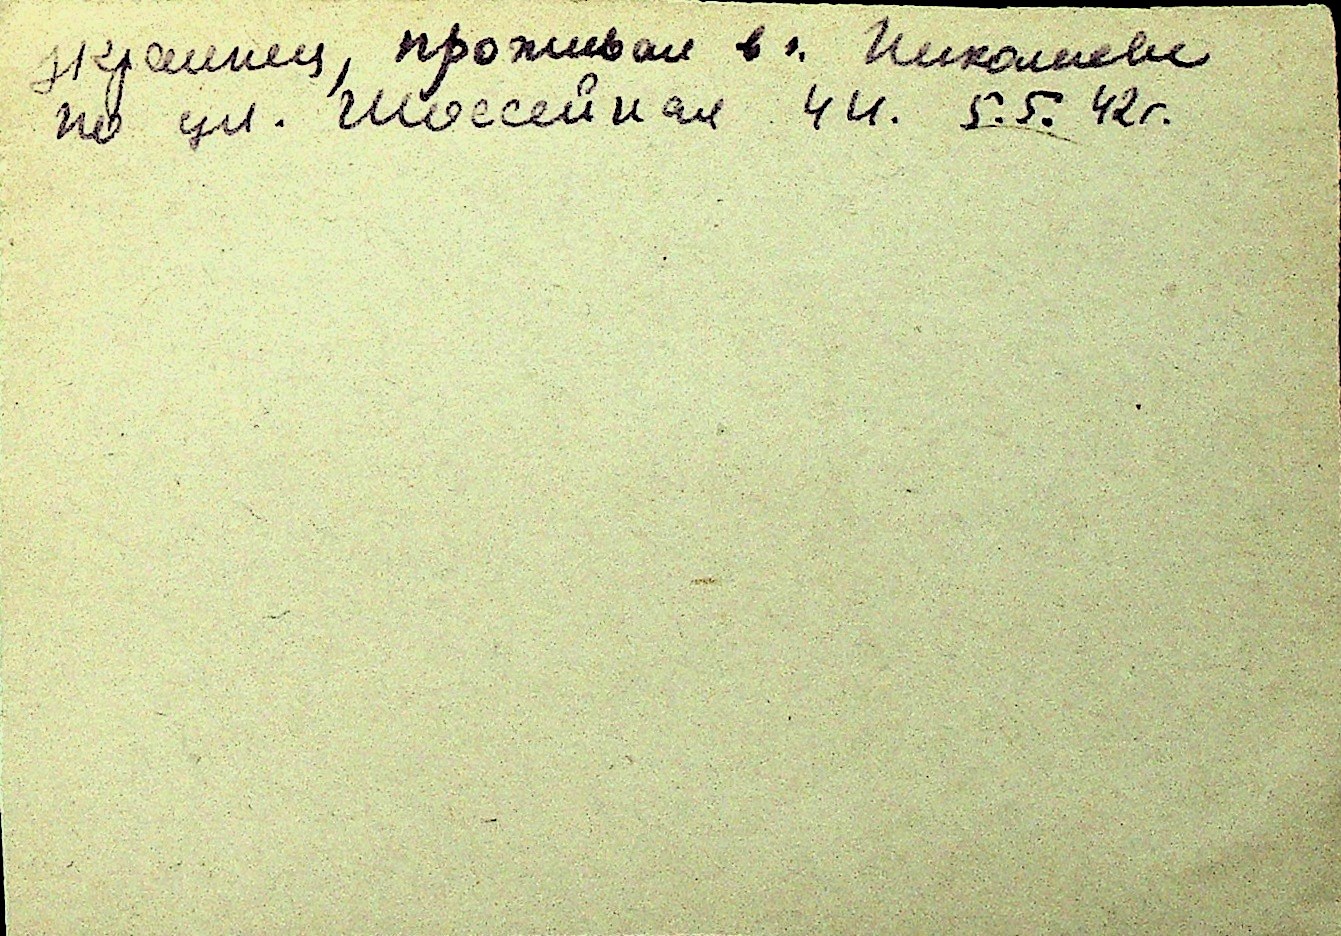 украинец, проживал в г. Николаеве
по ул. Шоссейная 44. 5.5. 42г.